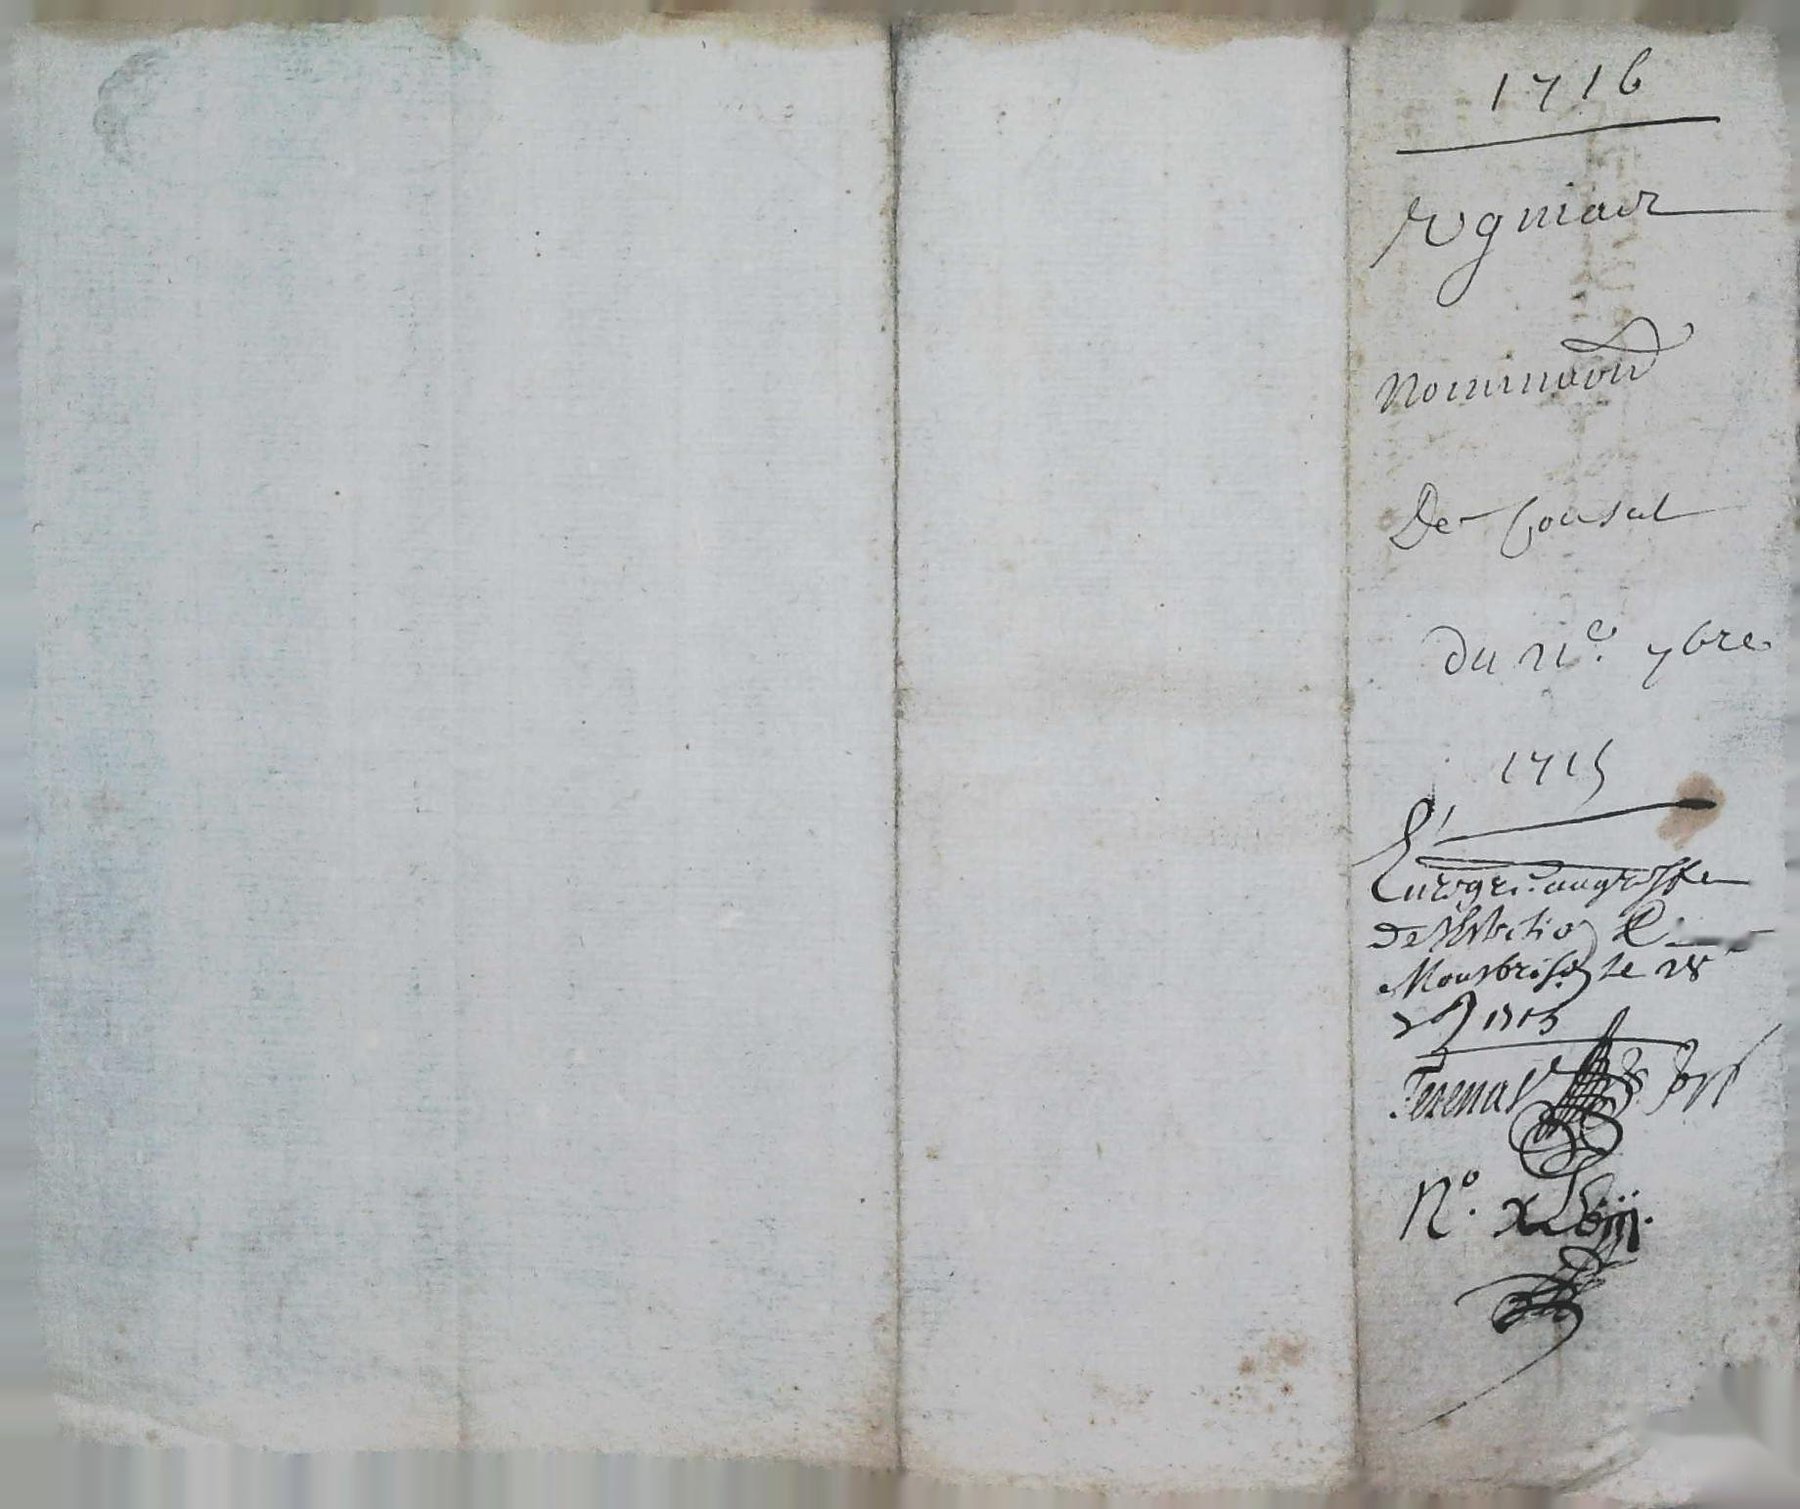 1716
Nominaõn
De Consul
du 21e. 7bre
1715
Enregré. au greffe
de l'Election de
Montbrison le 28
7bre 1715
N°. xLviij.